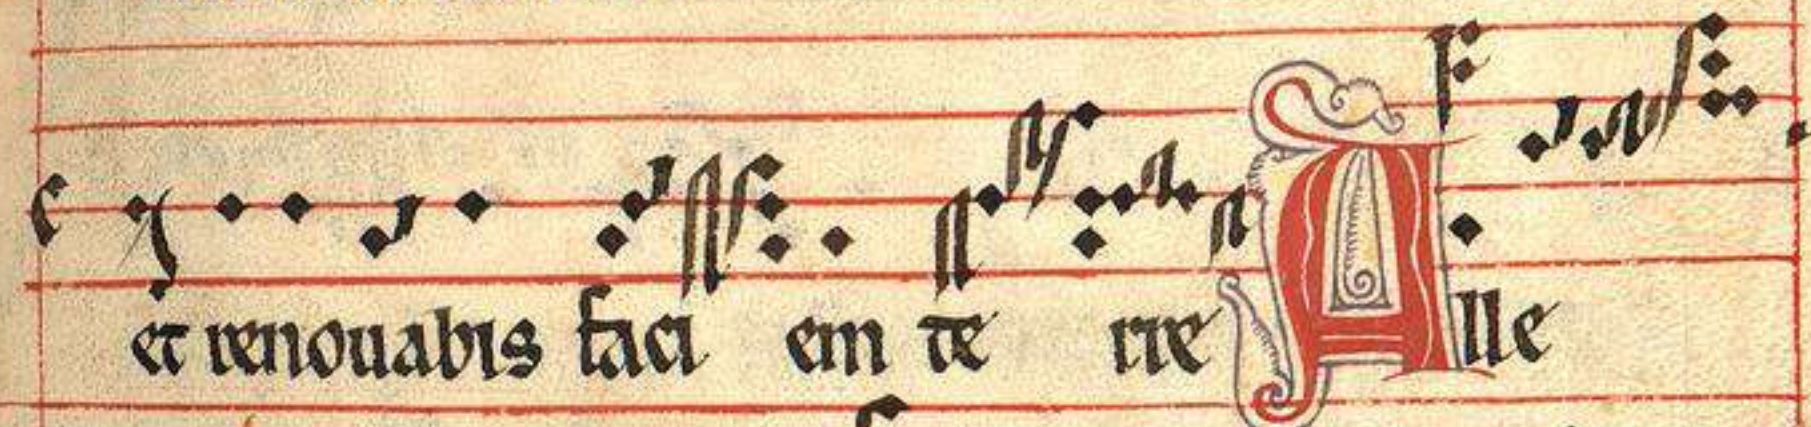 et renouabis faci em te rre Alle